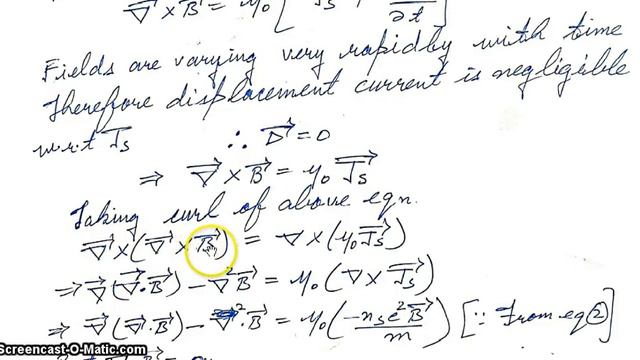 ∇⃗ × B⃗ = μ₀ [ J⃗s ∂t ]
Fields are varying very rapidly with time
Therefore displacement current is negligible
w.r.t J⃗s ∴ D⃗ = 0
⇒ ∇⃗ × B⃗ = μ₀ J⃗s
Taking curl of above eqn.
∇⃗ × (∇⃗ × B⃗) = ∇ × (μ₀ J⃗s)
⇒ ∇⃗ (∇⃗ · B⃗) − ∇² B⃗ = μ₀ (∇ × J⃗s)
⇒ ∇⃗ (∇⃗ · B⃗) − ∇² · B⃗ = μ₀ (−nₛe²B⃗ / m) [∵ From eq ②]
Screencast-O-Matic.com